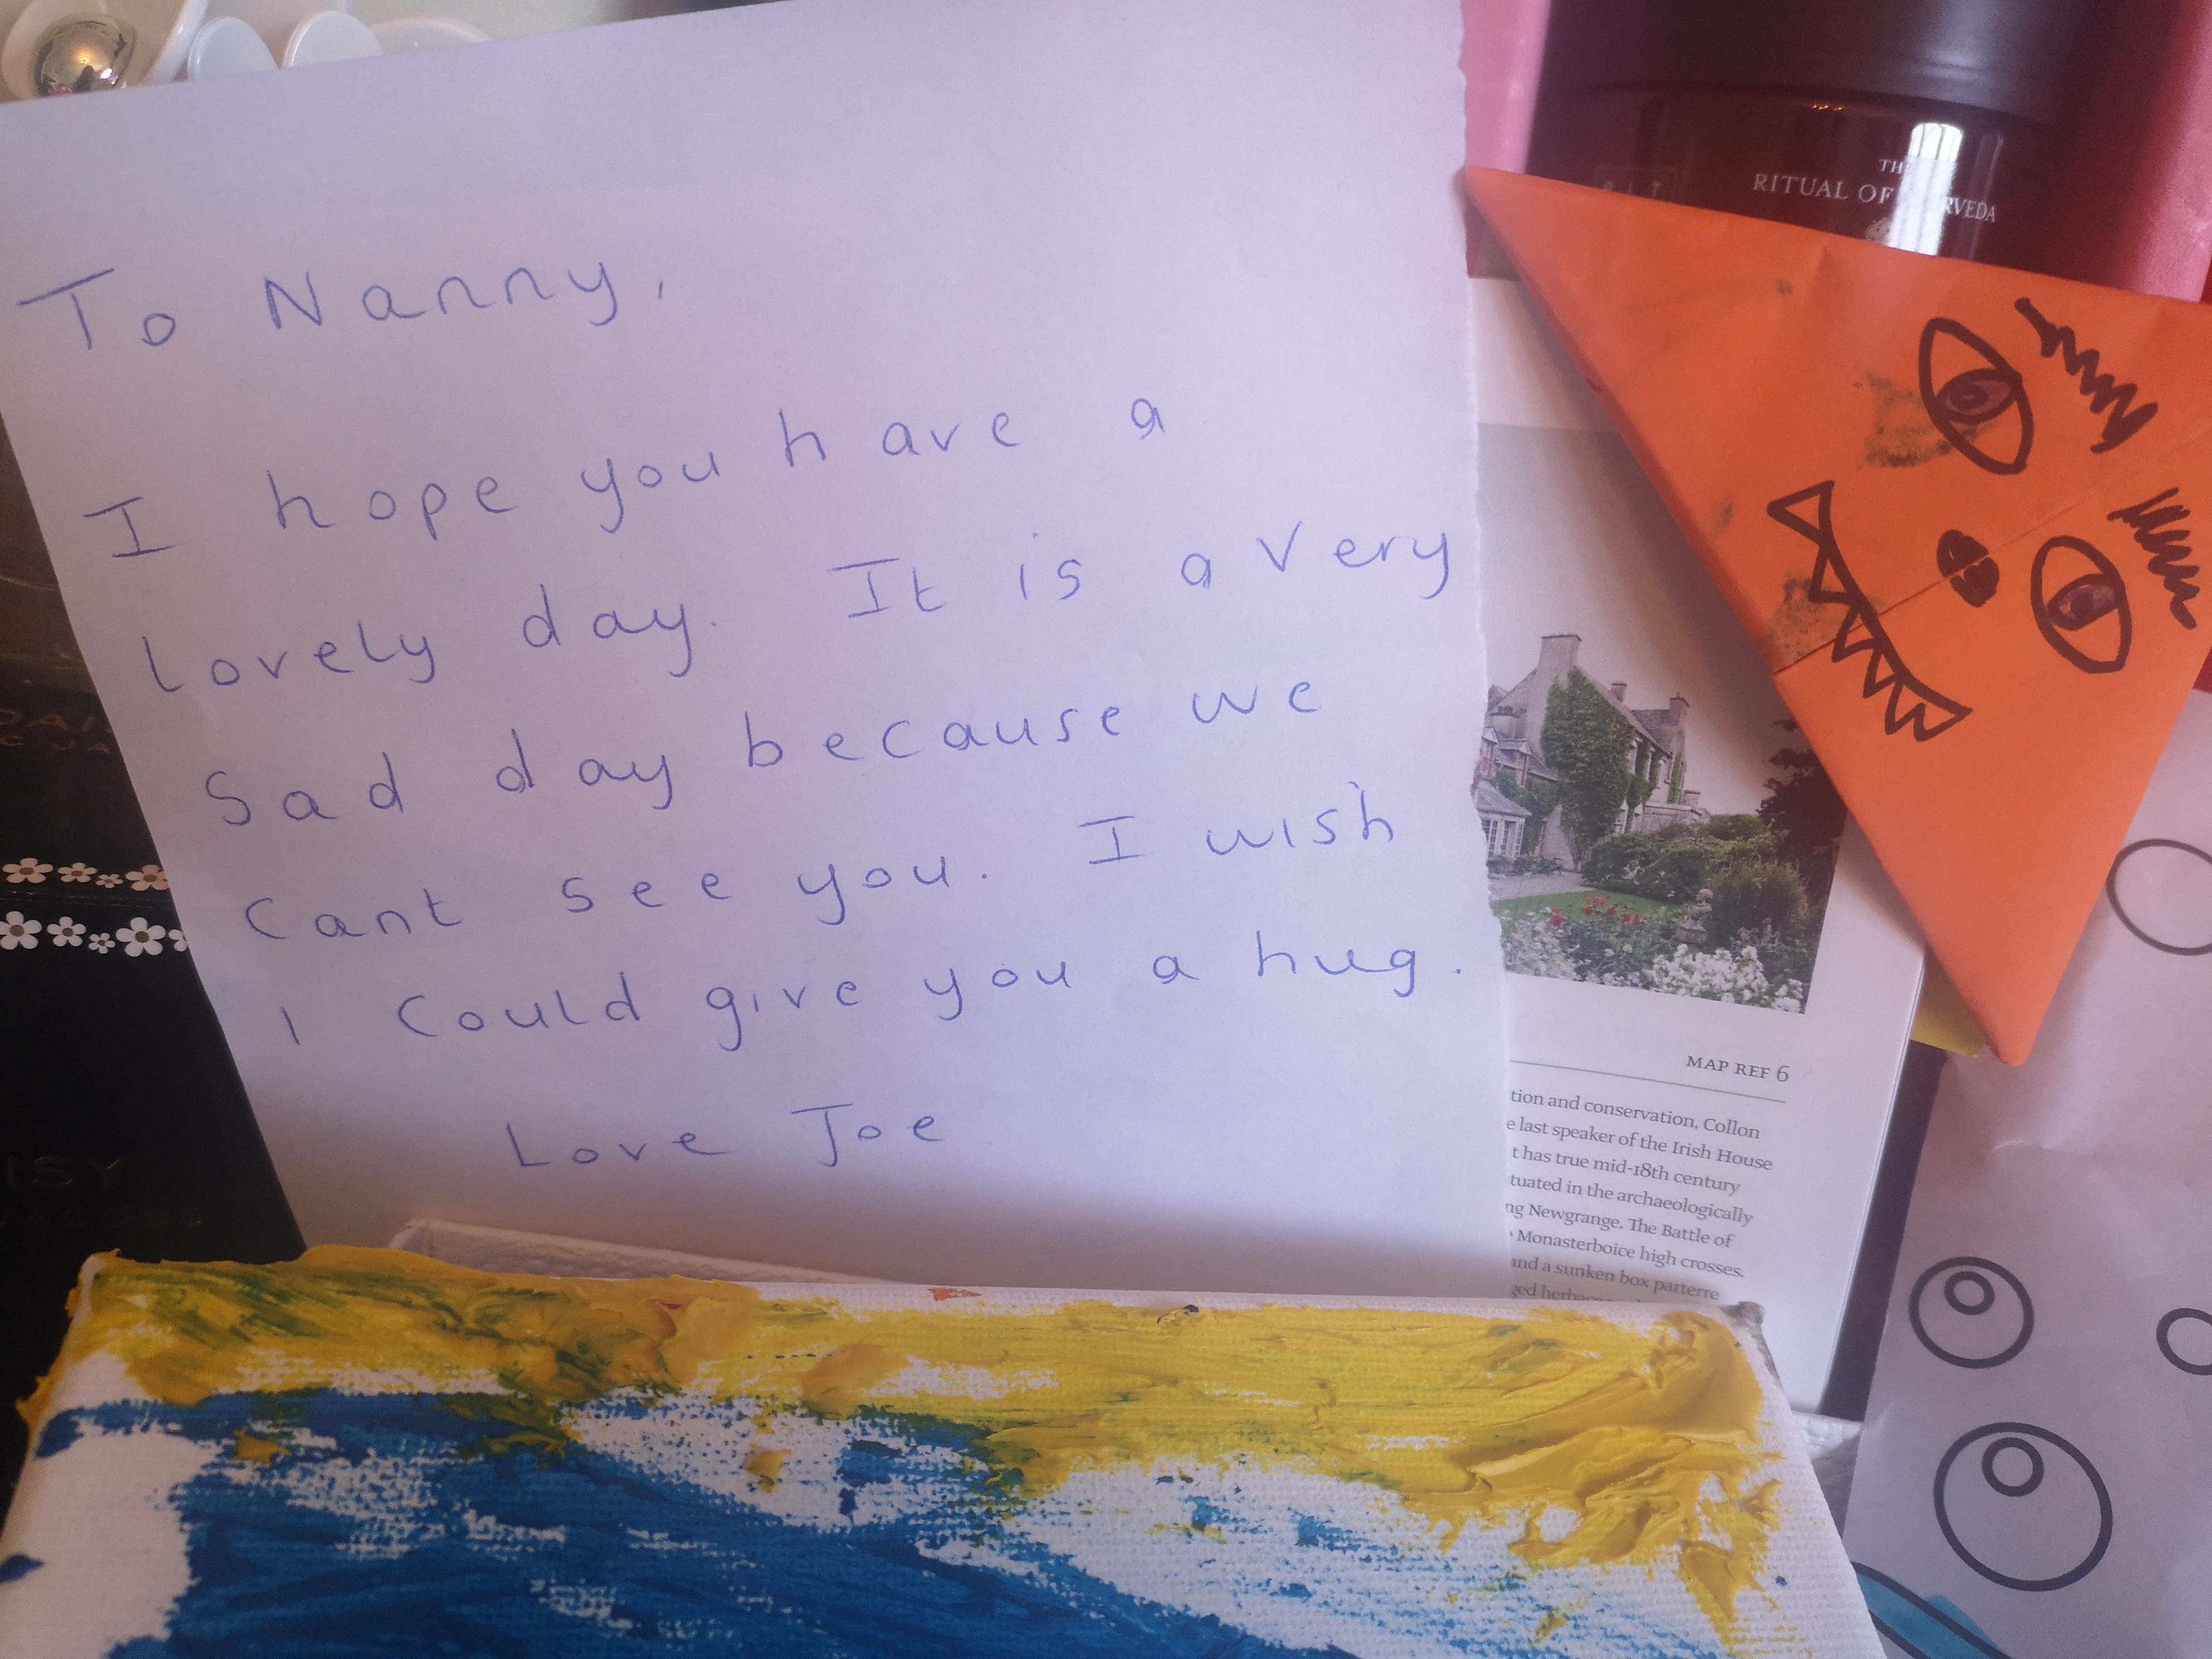 To Nanny,
I hope you have a
lovely day. It is a very
Sad day because we
Cant see you. I wish
I Could give you a hug.
Love Joe
THE
RITUAL OF
MAP REF 6
tion and conservation, Collon
e last speaker of the Irish House
t has true mid-18th century
tuated in the archaeologically
ng Newgrange, The Battle of
Monasterboice high crosses.
and a sunken box parterre